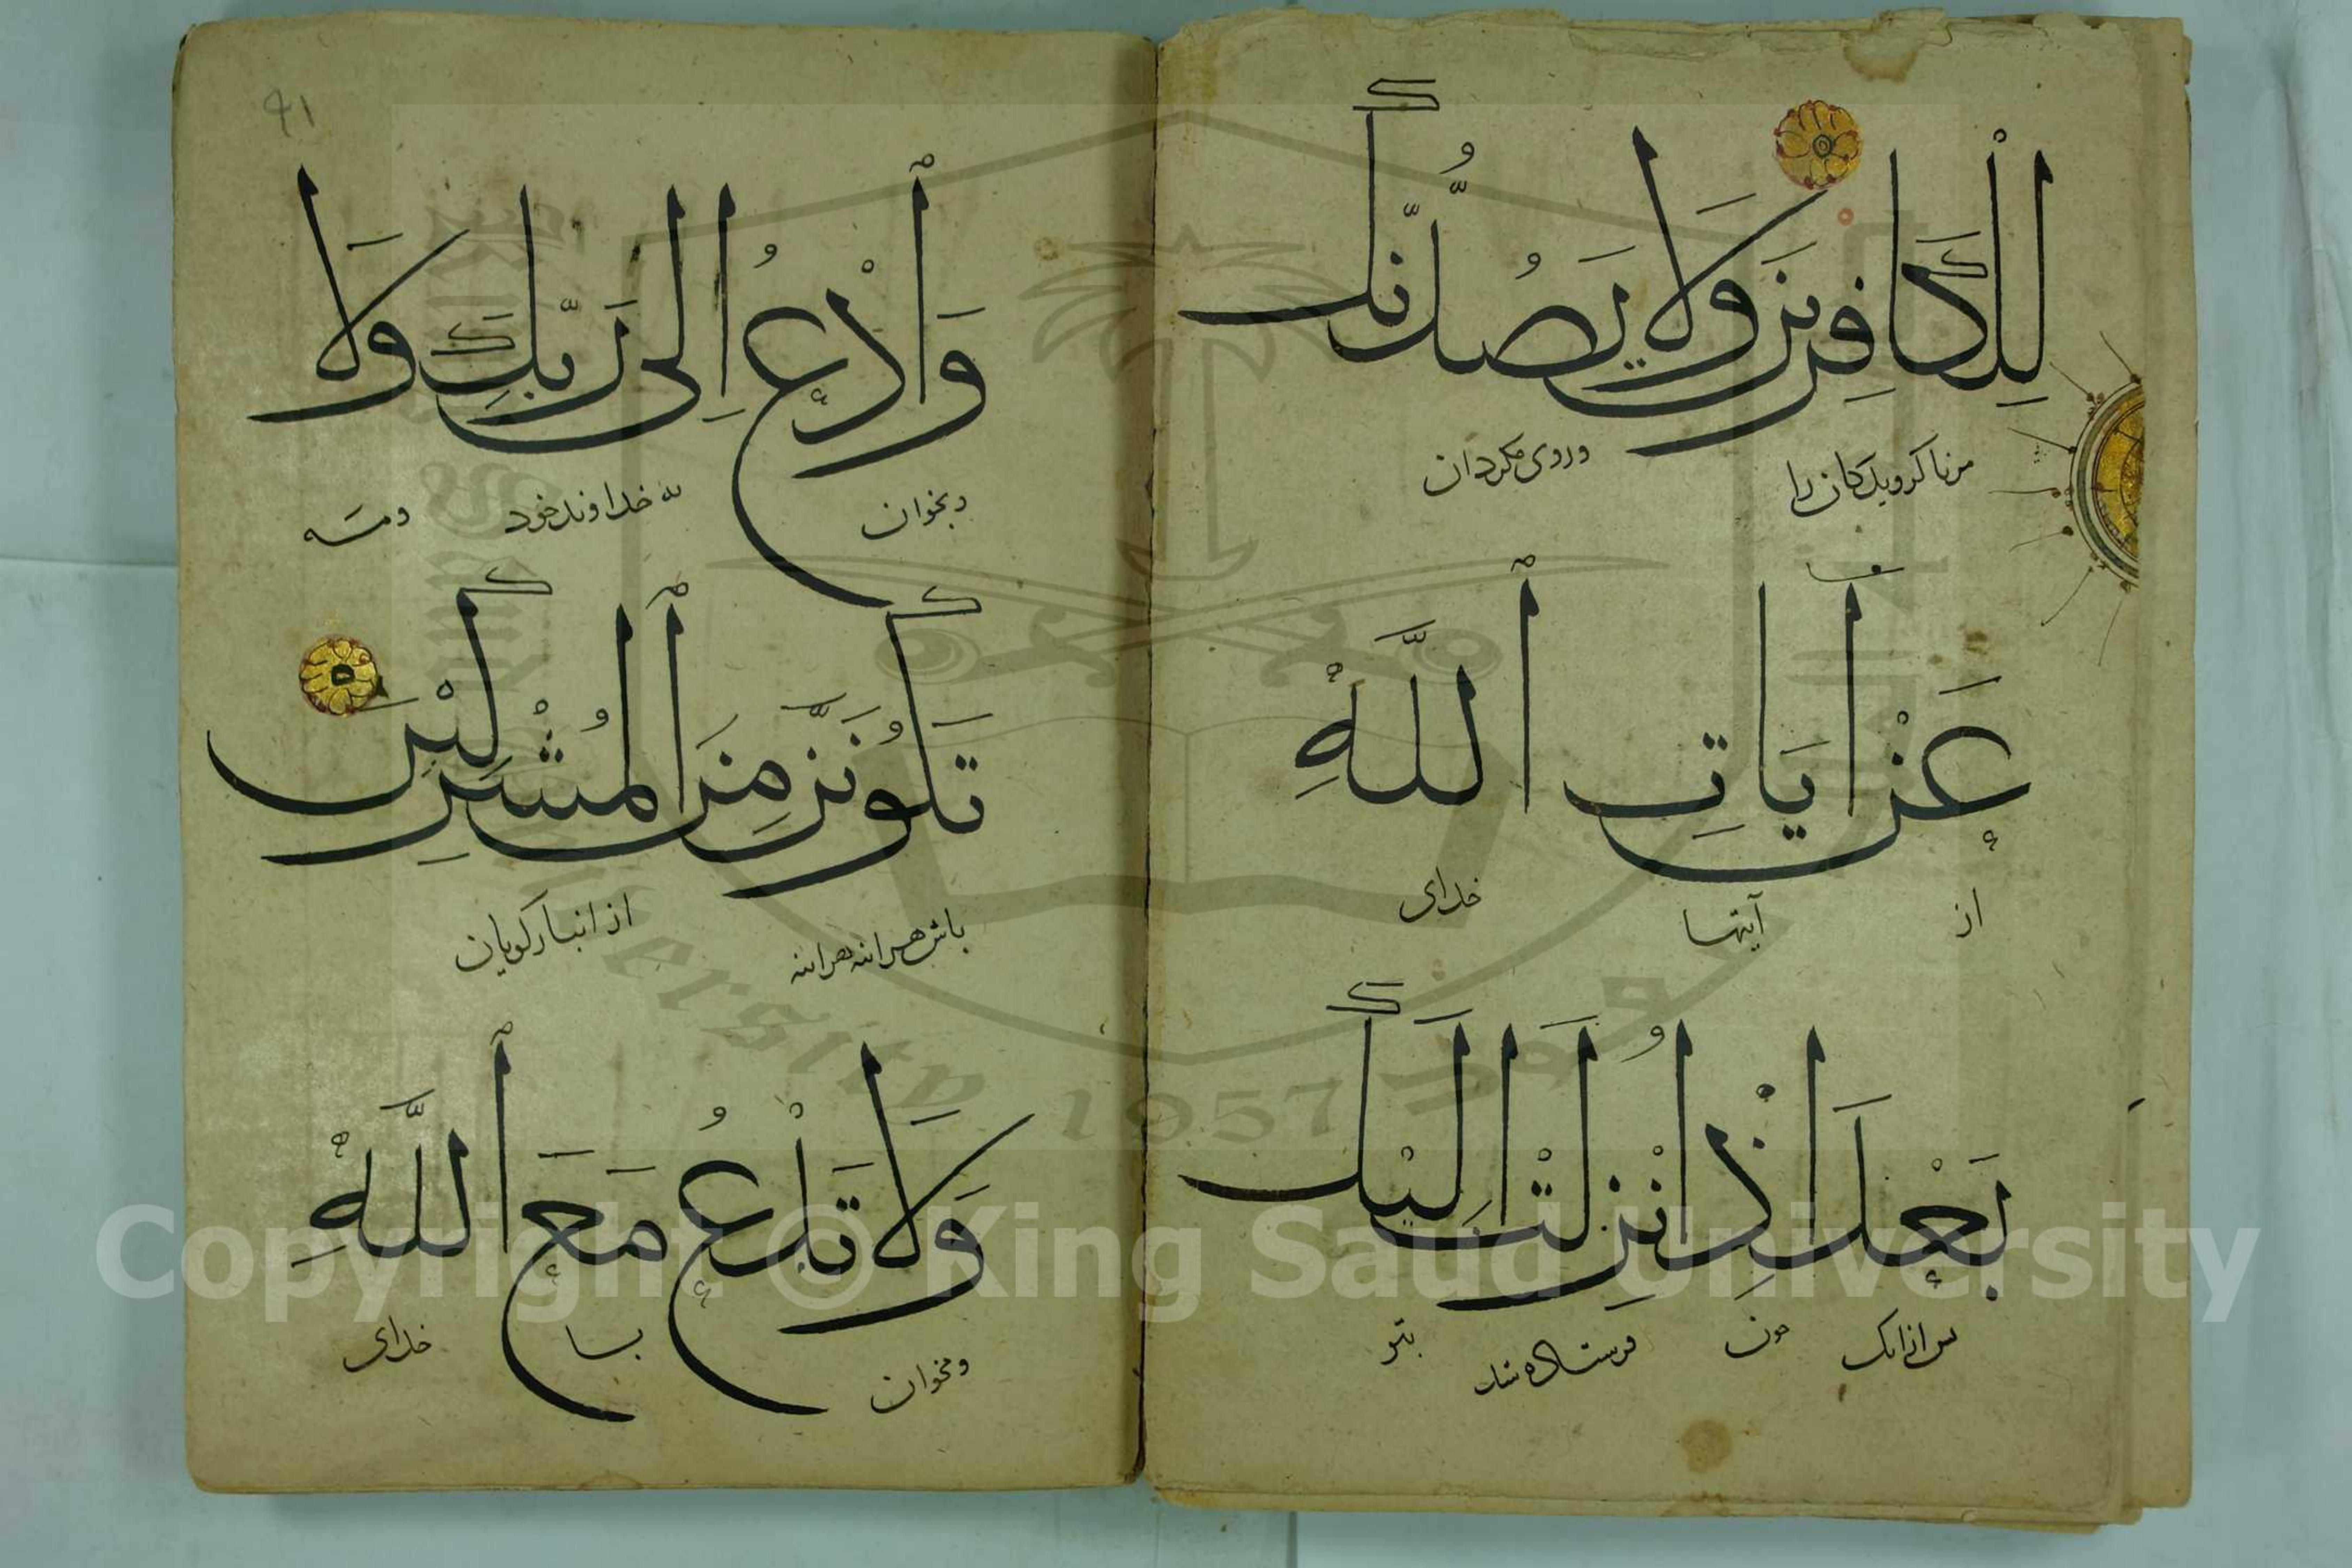 لِلْكَافِرِينَ وَلَا يَصُدُّنَّكَ
مرنا كرويدكان را وروی مكردان
عَنْ آيَاتِ ٱللَّهِ
از آيتها خدای
بَعْدَ إِذْ أُنْزِلَتْ إِلَيْكَ
بس ازانك چون فرستاده شد بتو
٩١
وَٱدْعُ إِلَى رَبِّكَ وَلَا
وبخوان به خداوند خود ومه
تَكُونَنَّ مِنَ ٱلْمُشْرِكِينَ
باش هراينه هراينه از انبازكويان
وَلَا تَدْعُ مَعَ ٱللَّهِ
ومخوان با خدای
Copyright © King Saud University
1957